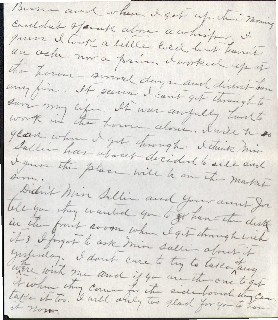 and when I got up this morning
couldn't speak alone a whisper, I
guess I took a little cold but haven't
an ache nor a pain. I worked up at
the house several days and didn't have
any fire. It seems I can't get through to
save my life. It was awfully hard to
work in the house alone. I will be so
glad when I get through. I think Miss
Sallie has about decided to sell and
I guess the place will be on the market
soon.
Didn't Miss Sallie and your aunt
tell you they wanted you to have the desk
in the front room when I got through with
it? I forgot to ask Miss Sallie about it
yesterday. I don't care to try to take any
with me and if you are the one to get
it when they come for the
take it too. I will only be glad for you to have
it now.